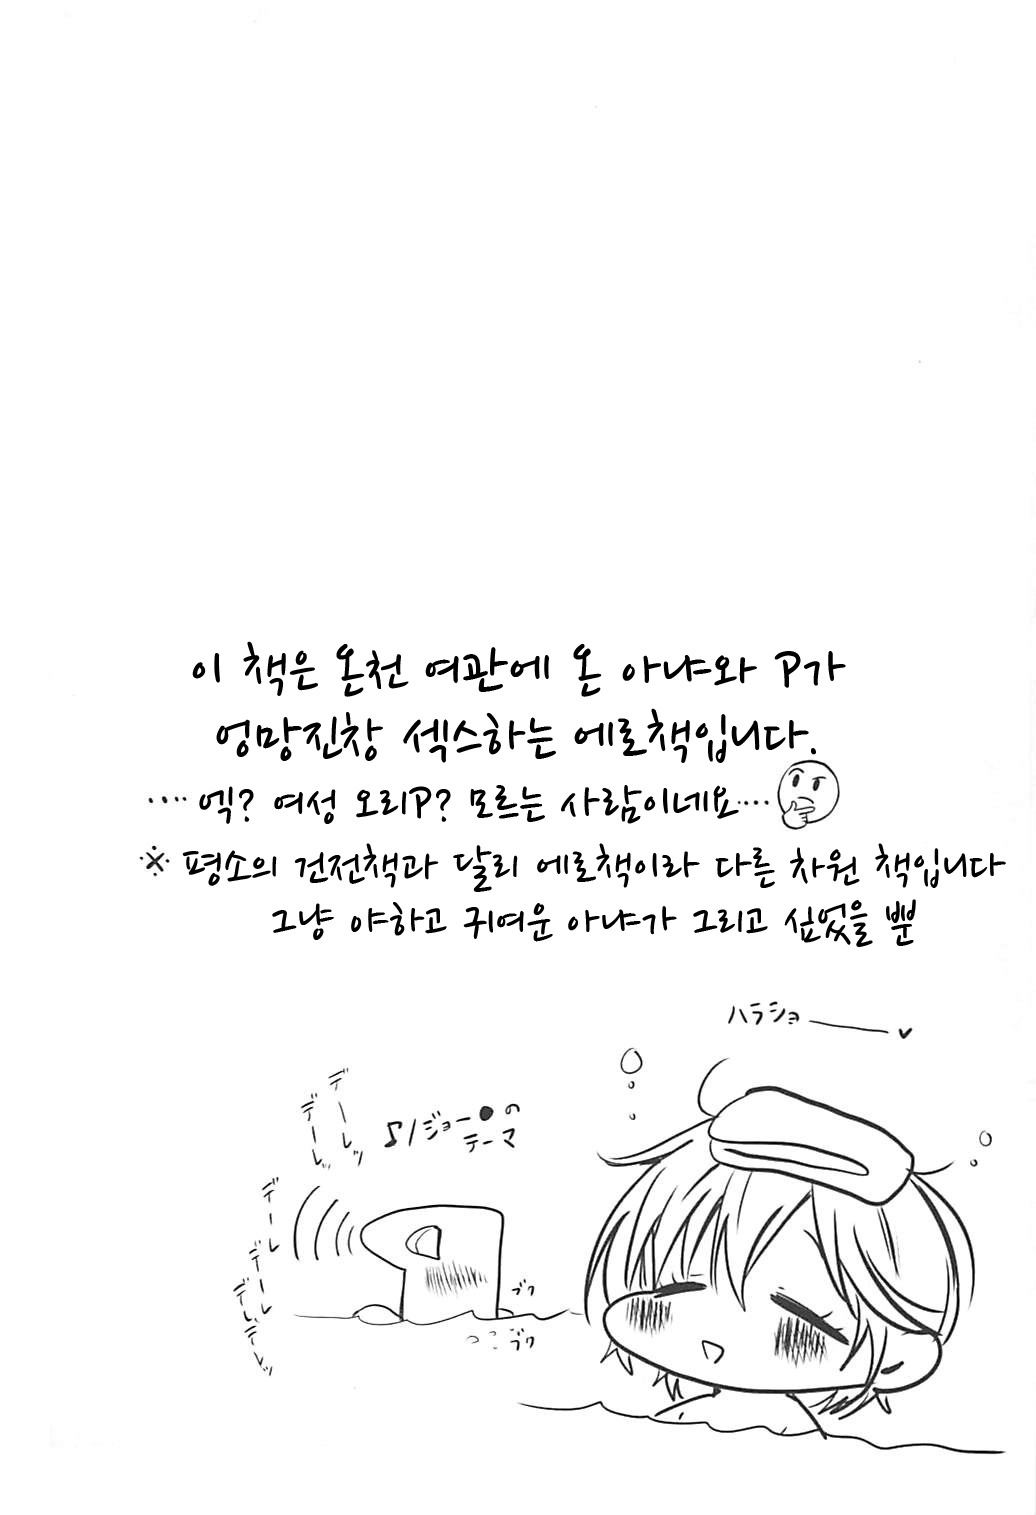 이 책은 온천 여관에 온 아냐와 P가
엉망진창 섹스하는 에로책입니다.
‥‥엑? 여성 오리P? 모르는 사람이네요‥‥
※ 평소의 건전책과 달리 에로책이라 다른 차원 책입니다
그냥 야하고 귀여운 아냐가 그리고 싶었을 뿐
ハラショ——♥
デーレッ
デーレッ
♪/ジョー●の
テーマ
デーレ
デーレ
デレデレッ
ブク
ブク